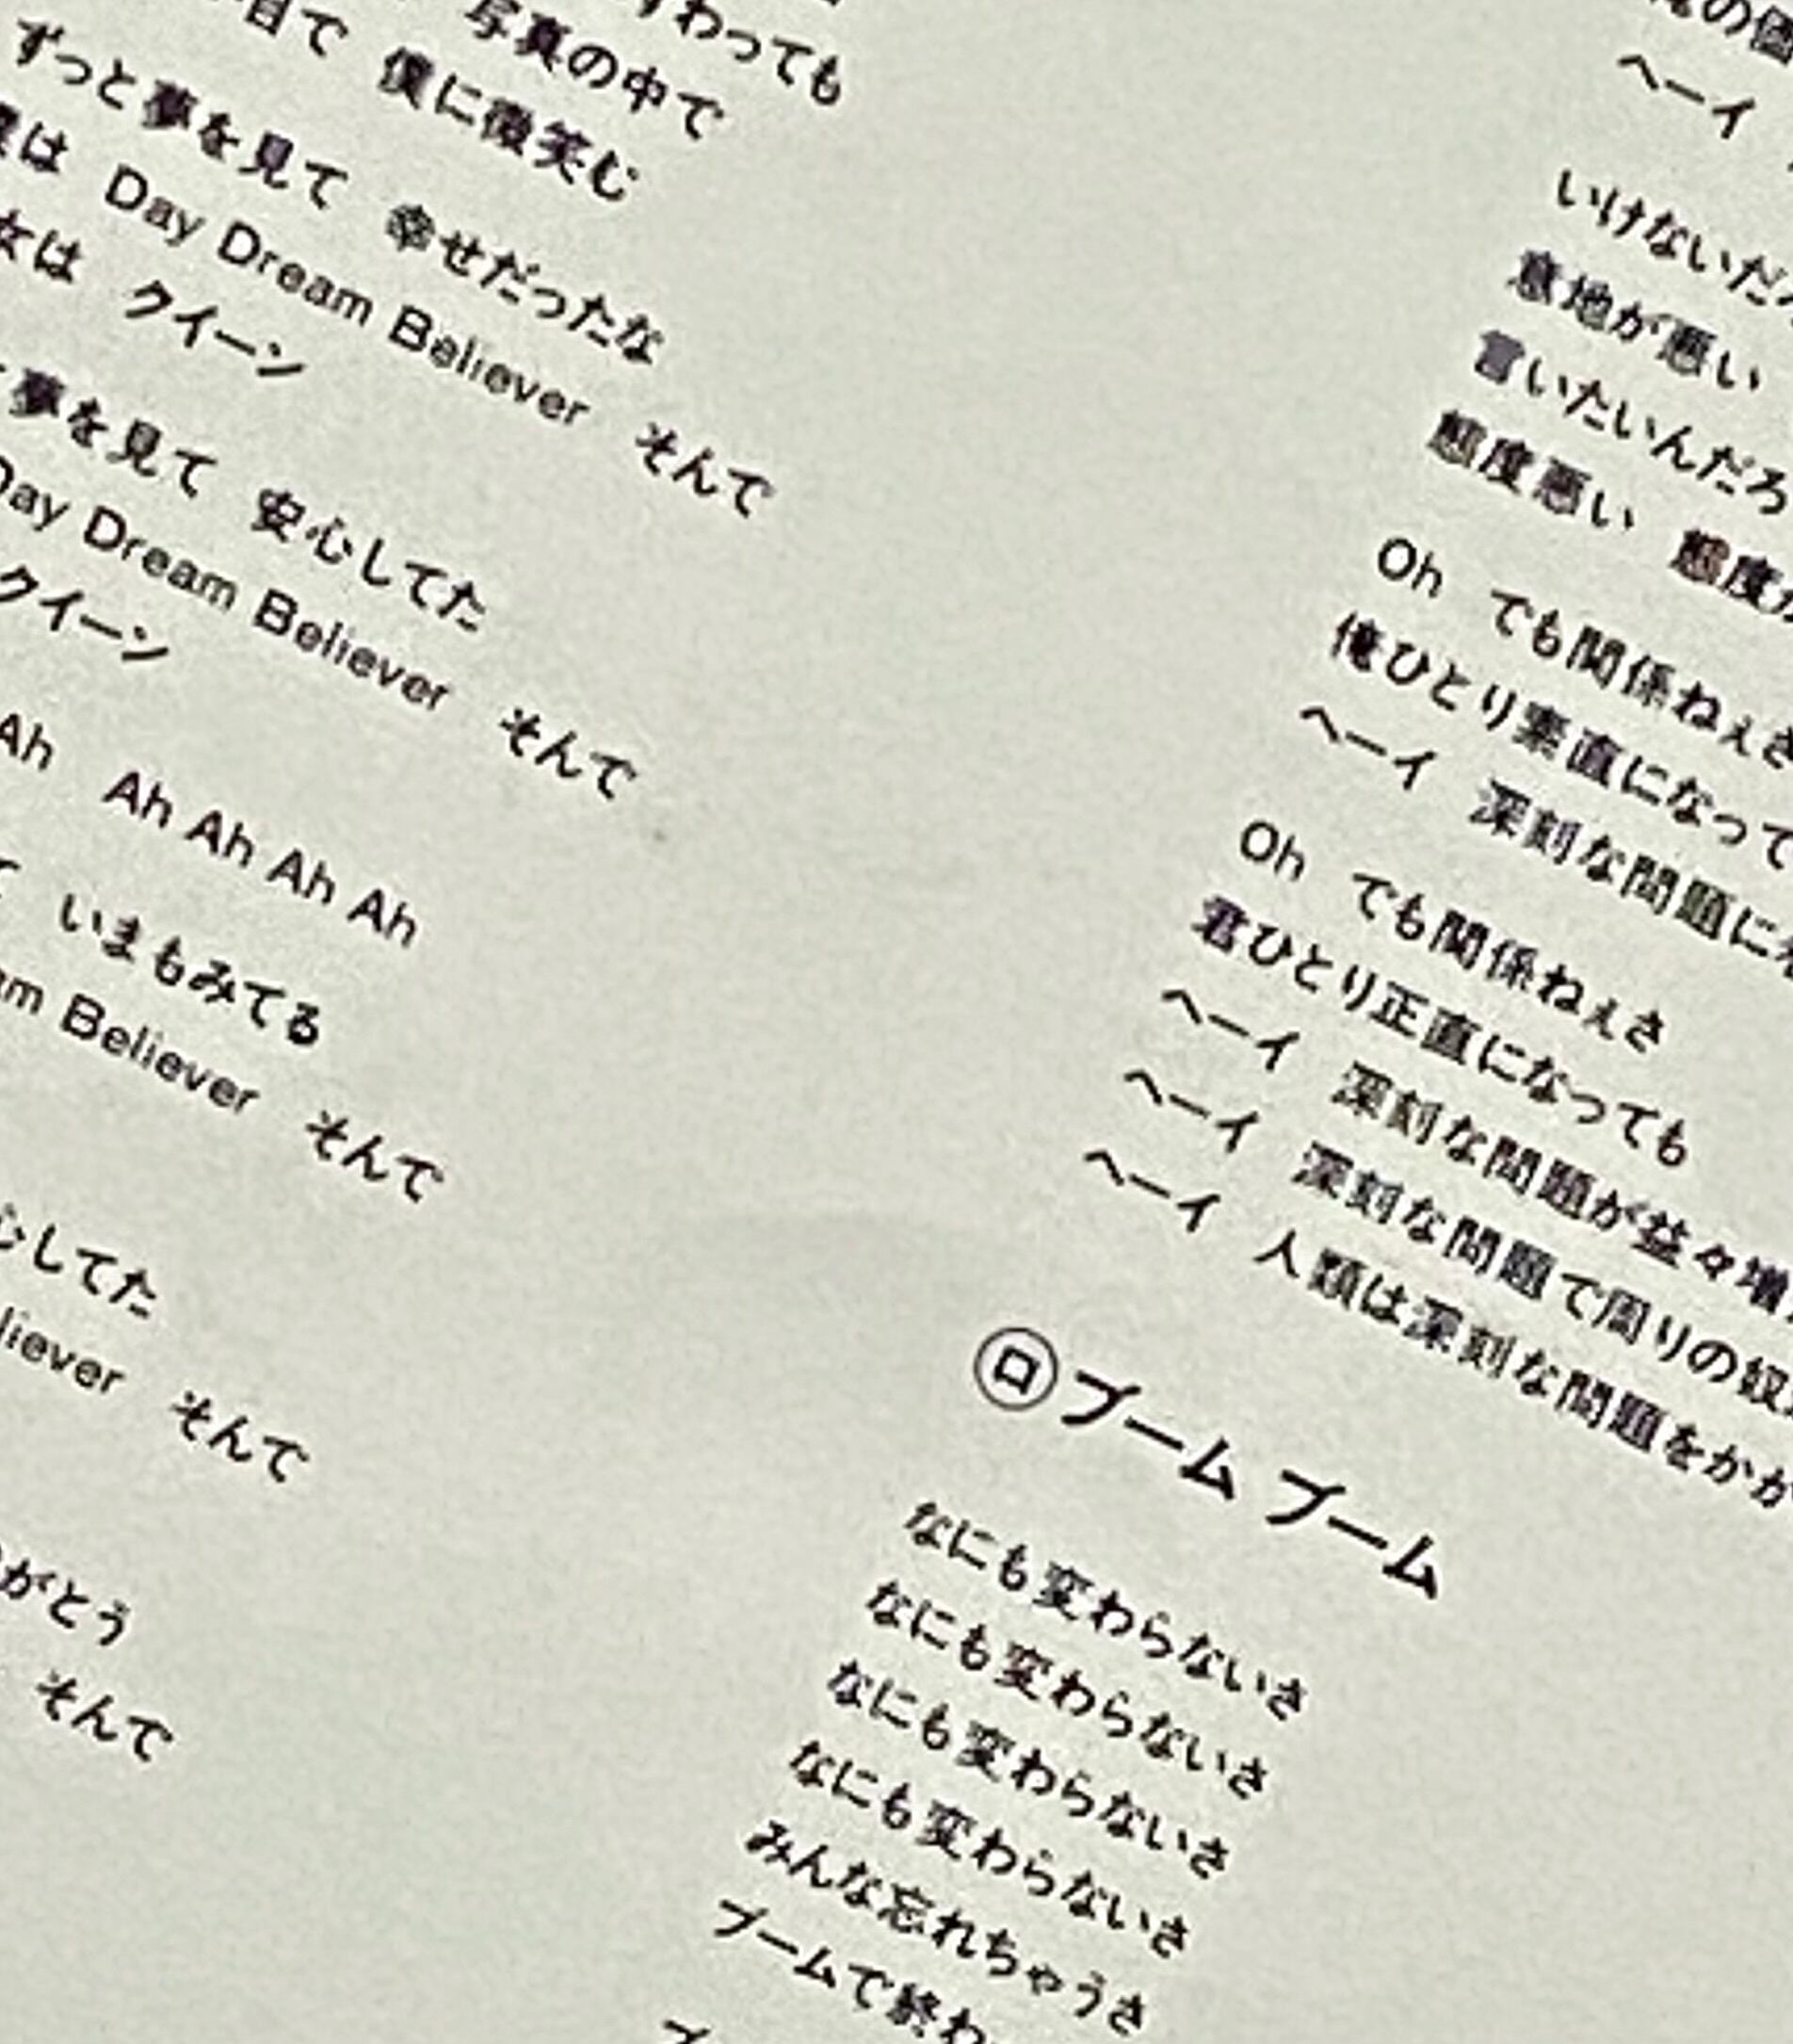 すわっても
写真の中で
目で 僕に微笑む
ずっと夢を見て 幸せだったな
は Day Dream Believer そんで
女は クイーン
夢を見て 安心してた
Day Dream Believer そんで
クイーン
Ah Ah Ah Ah Ah
いまもみてる
Believer そんで
心してた
liever そんで
がとう
そんで
の価
ヘーイ
いけないだろ
意地が悪い
言いたいんだろ
態度悪い 態度が
Oh でも関係ねぇさ
俺ひとり素直になって
ヘーイ 深刻な問題に
Oh でも関係ねぇさ
君ひとり正直になっても
ヘーイ 深刻な問題が益々増
ヘーイ 深刻な問題で周りの奴
ヘーイ 人類は深刻な問題をかか
ロ ブーム ブーム
なにも変わらないさ
なにも変わらないさ
なにも変わらないさ
なにも変わらないさ
みんな忘れちゃうさ
ブームで終わ